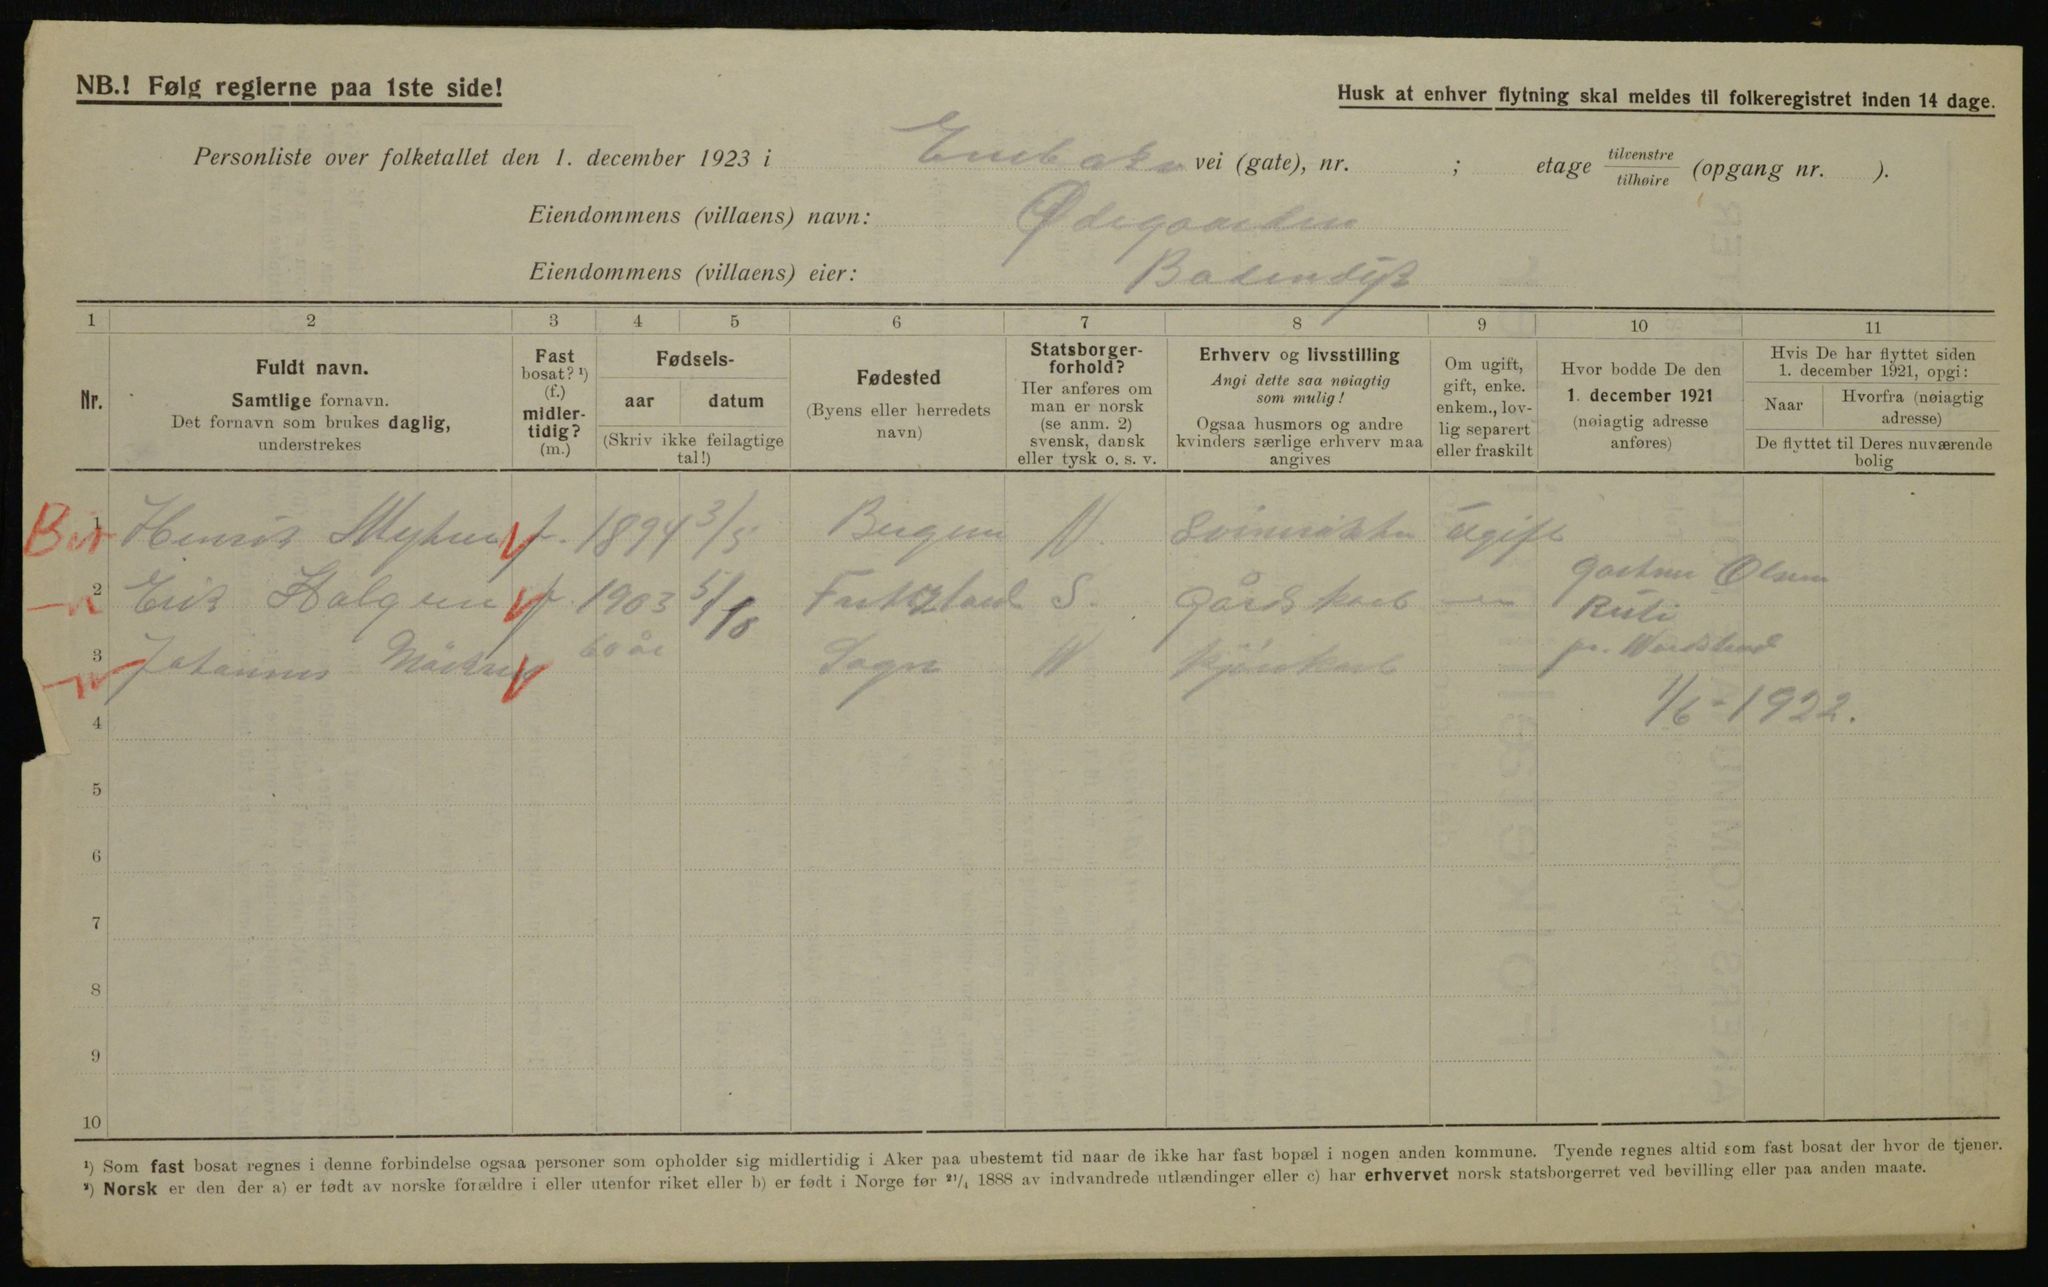 NB.! Følg reglerne paa 1ste side!
Husk at enhver flytning skal meldes til folkeregistret inden 14 dage.
Personliste over folketallet den 1. december 1923 i vei (gate), nr. ; etage tilvenstre/tilhøire (opgang nr. ).
Eiendommens (villaens) navn: Ødegaarden
Eiendommens (villaens) eier:
1 2 3 4 5 6 7 8 9 10 11
Nr.
Fuldt navn.
Samtlige fornavn.
Det fornavn som brukes daglig,
understrekes
Fast
bosat? ¹)
(f.)
midler-
tidig?
(m.)
Fødsels-
aar datum
(Skriv ikke feilagtige
tal!)
Fødested
(Byens eller herredets
navn)
Statsborger-
forhold?
Her anføres om
man er norsk
(se anm. 2)
svensk, dansk
eller tysk o. s. v.
Erhverv og livsstilling
Angi dette saa nøiagtig
som mulig!
Ogsaa husmors og andre
kvinders særlige erhverv maa
angives
Om ugift,
gift, enke.
enkem., lov-
lig separert
eller fraskilt
Hvor bodde De den
1. december 1921
(nøiagtig adresse
anføres)
Hvis De har flyttet siden
1. december 1921, opgi:
Naar
Hvorfra (nøiagtig
adresse)
De flyttet til Deres nuværende
bolig
1 Henrik f. 1894 3/5 Bergen N. Ugift
2 Erik f. 1903 5/10 S. Gårdskarl Olsen
3 Johannes 60 år Sogn N
1/6-1922.
4
5
6
7
8
9
10
¹) Som fast bosat regnes i denne forbindelse ogsaa personer som opholder sig midlertidig i Aker paa ubestemt tid naar de ikke har fast bopæl i nogen anden kommune. Tyende regnes altid som fast bosat der hvor de tjener.
²) Norsk er den der a) er født av norske forældre i eller utenfor riket eller b) er født i Norge før 21/4 1888 av indvandrede utlændinger eller c) har erhvervet norsk statsborgerret ved bevilling eller paa anden maate.